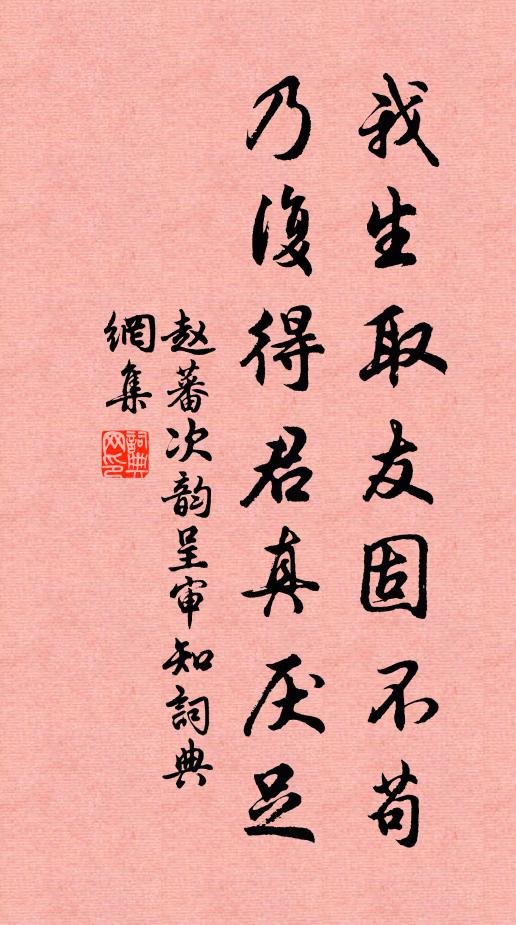 我生取友固不苟
乃復得君真厌足
赵蕃次韵呈审知詞典
網集
詞典
网印